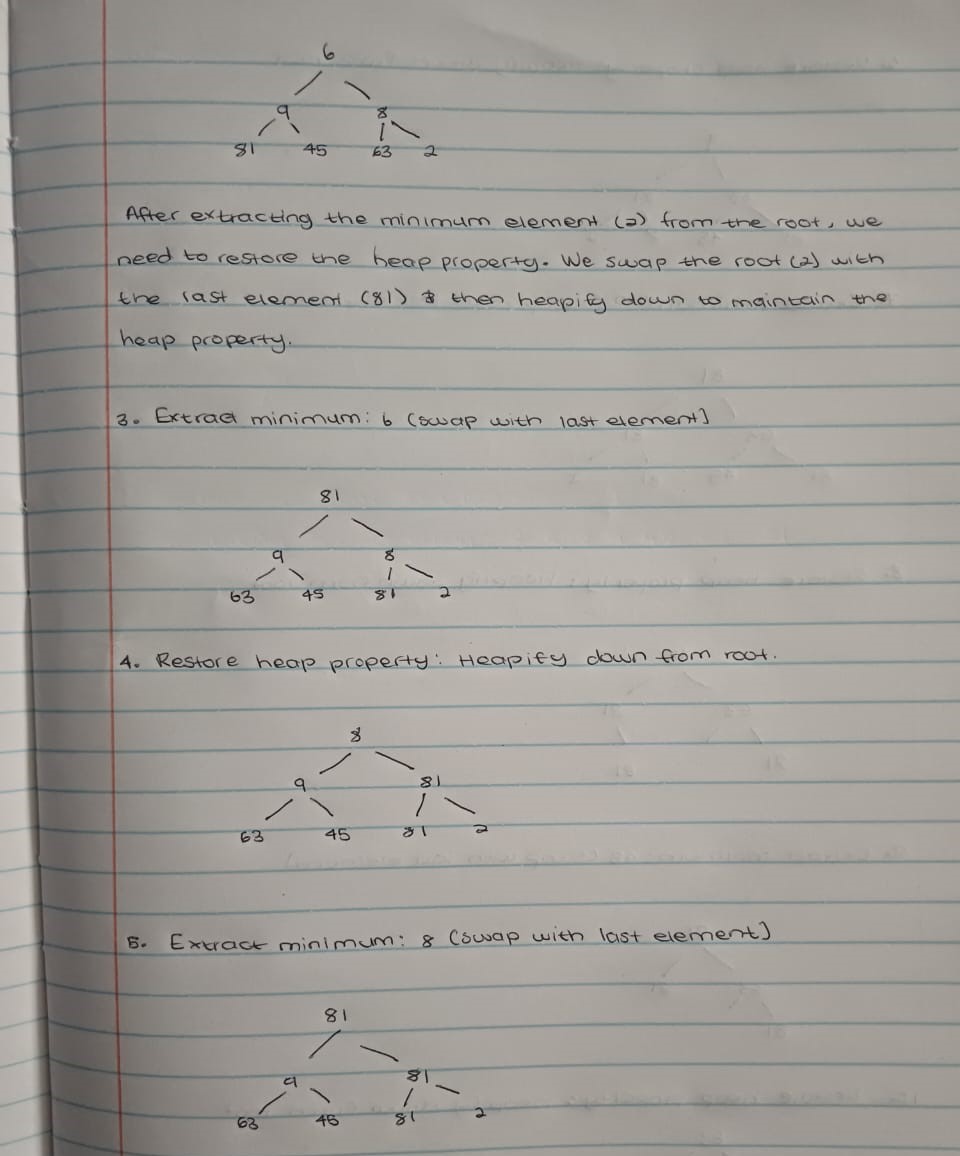 6
9 8
81 45 63 2
After extracting the minimum element (2) from the root, we
need to restore the heap property. We swap the root (2) with
the last element (81) & then heapify down to maintain the
heap property.
3. Extract minimum: 6 (swap with last element)
81
9 8
63 45 81 2
4. Restore heap property: Heapify down from root.
8
9 81
63 45 81 2
5. Extract minimum: 8 (swap with last element)
81
9 81
63 45 81 2